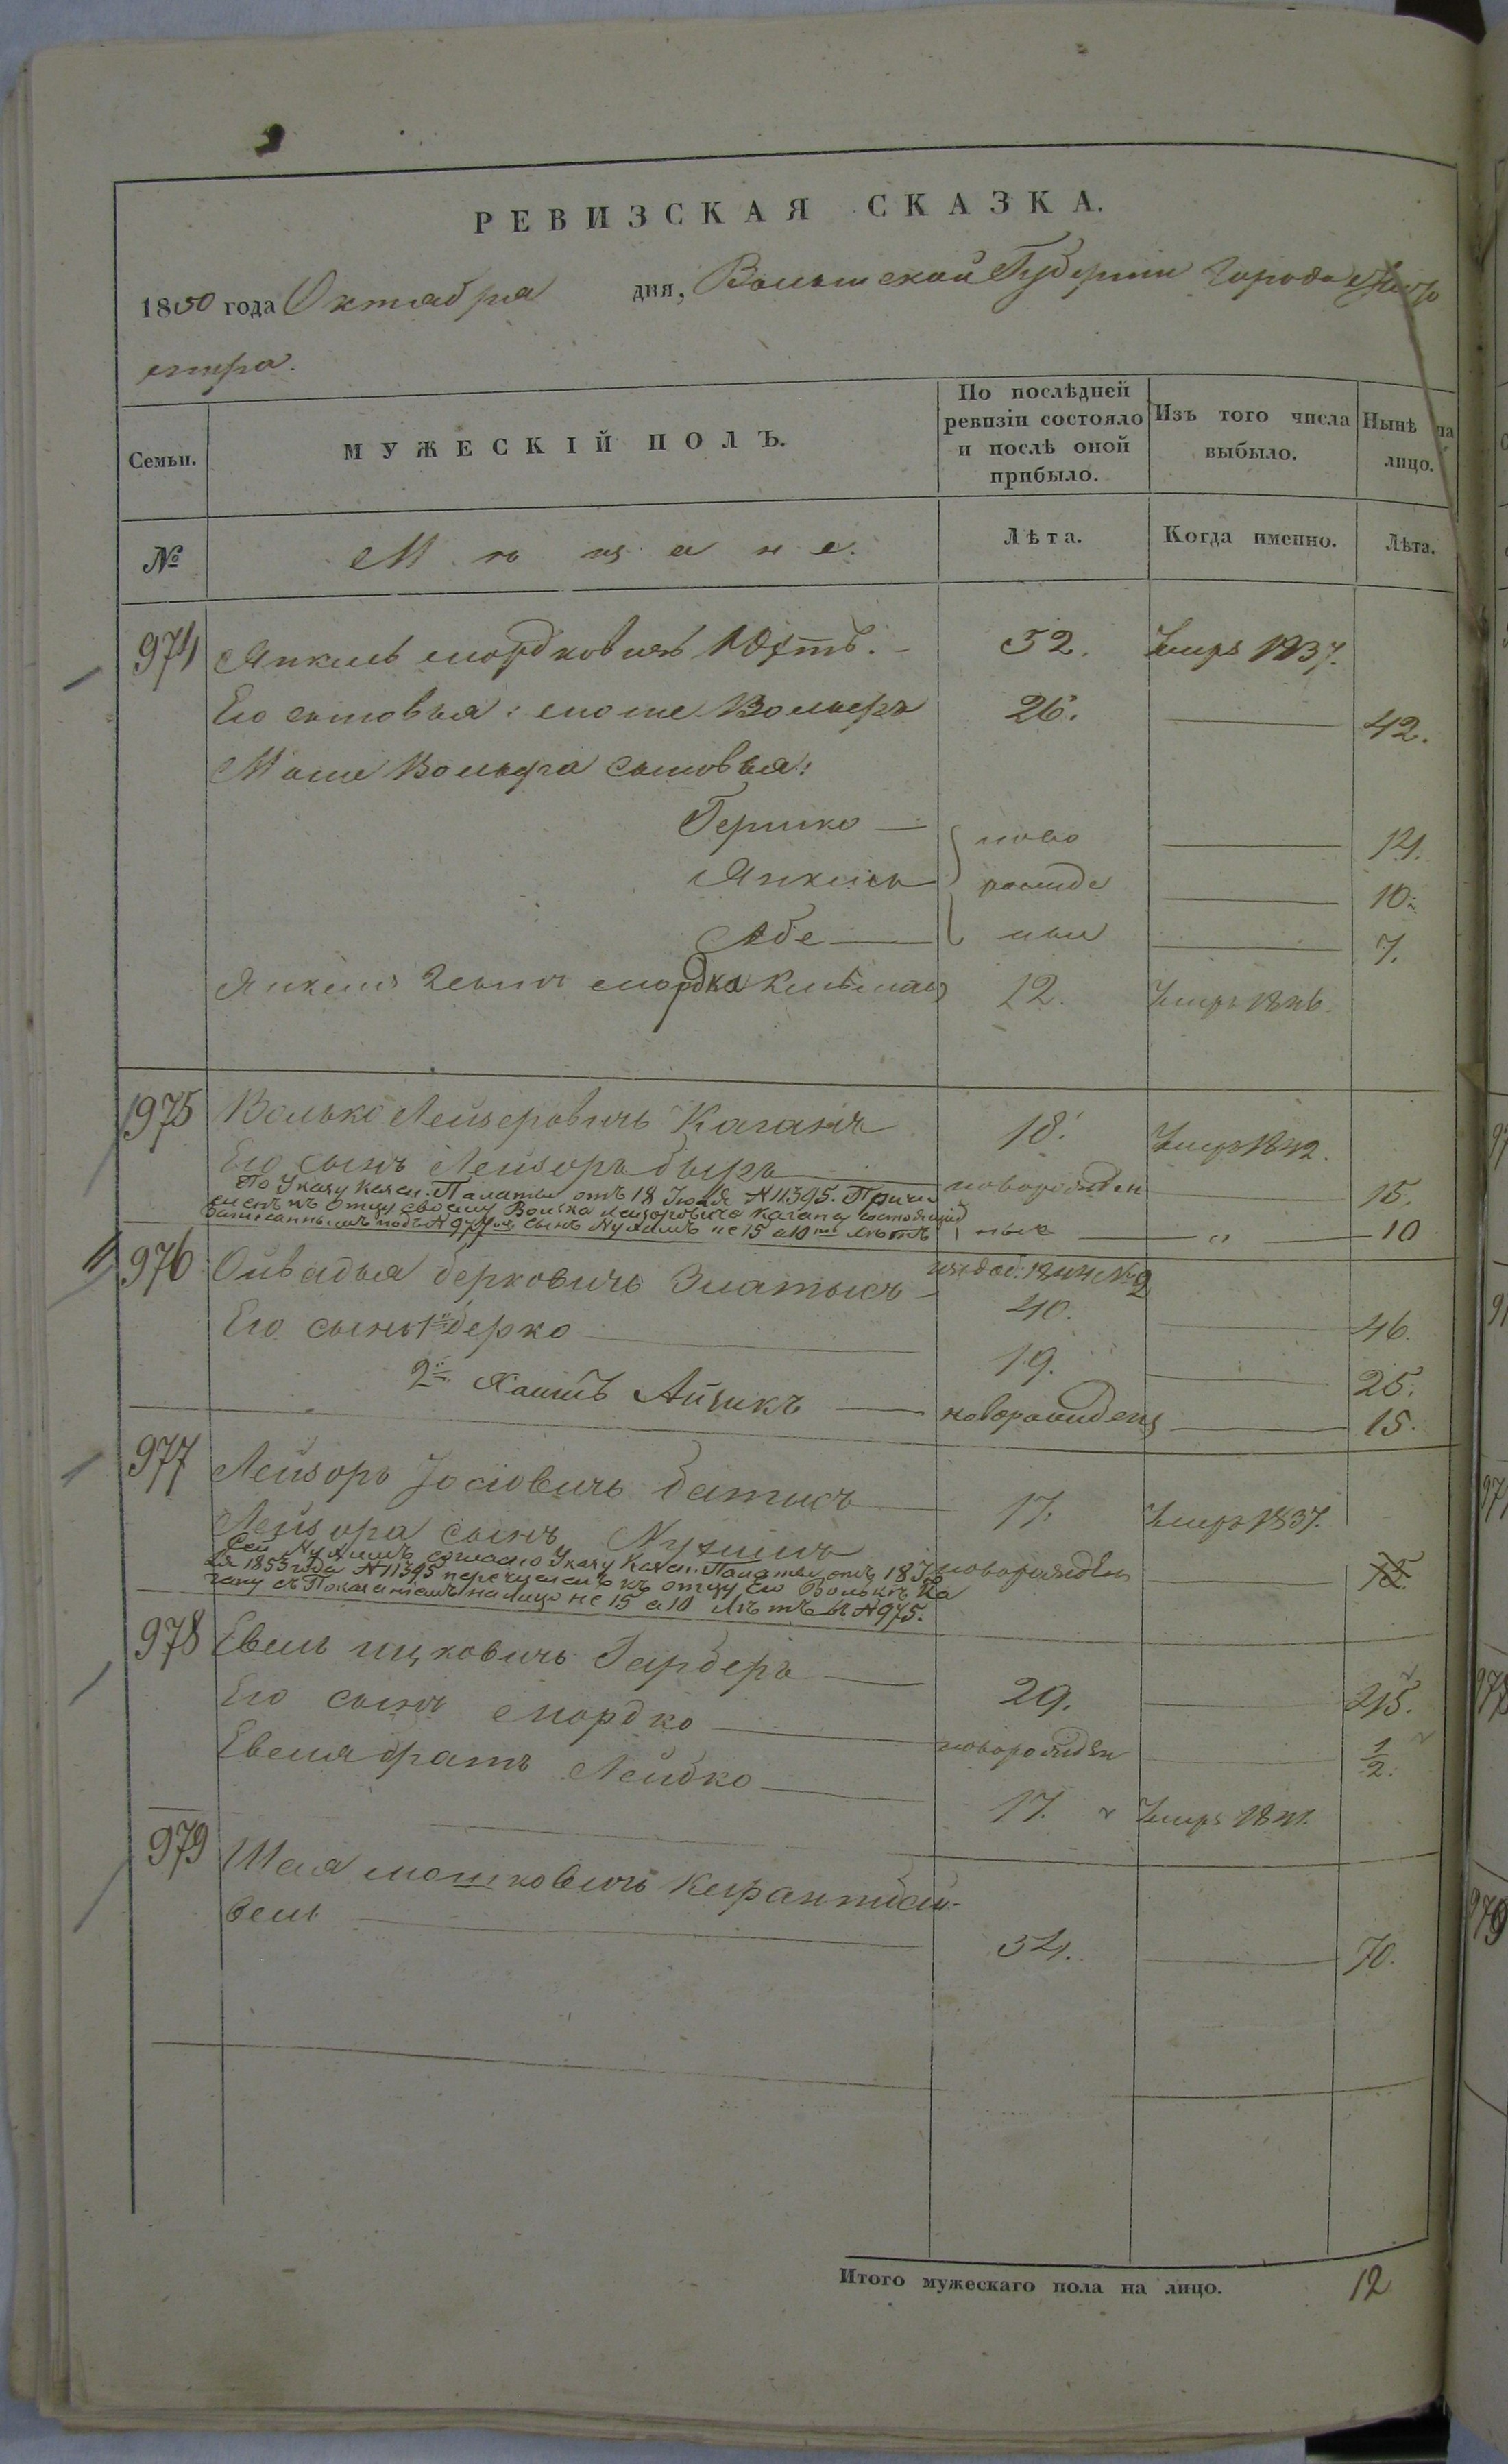 РЕВИЗСКАЯ СКАЗКА.
1850 года Октября дня, Волынской Губернии Города
Семьи. МУЖЕСКІЙ ПОЛЪ. По послѣдней ревизіи состояло и послѣ оной прибыло. Изъ того числа выбыло. Нынѣ на лицо.
№ Мѣщане. Лѣта. Когда именно. Лѣта.
974 Янкель Мордковичъ 52. Умеръ 1837.
Его сыновья: Моше Вольфъ 26. 42.
Моше Вольфа сыновья:
Гершко — ново 14.
Янкель рожде 10.
Абе — ные 7.
Янкеля Мордко 12. Умеръ 1846.
975 Волько Лейзеровичъ Каганъ 18. Умеръ 1842.
Его сынъ Лейзоръ Беръ новорожден 15.
По Указу Казен. Палаты отъ 18 Іюля №11395. Причи
сленъ къ отцу своему Волька Лейзоровича Кагана состоящій
записаннымъ подъ №977 сынъ Нухимъ не 15 а 10 лѣтъ ные — „ — 10
976 Овадья Берковичъ Златысъ 40. 46.
Его сынъ 1й Берко 19. 25.
2й Хаимъ Айзикъ — новорожденъ 15.
977 Лейзоръ Іосіовичъ 17. Умеръ 1837.
Лейзора сынъ Нухимъ новорожден 15.
Сей Нухимъ согласно Указу Казен. Палаты отъ 18 Ію
ля 1853 года №11395 перечисленъ къ отцу его Волькѣ Ка
гану съ Показаніемъ на лицо не 15 а 10 лѣтъ въ №975.
978 Евель Ицковичъ Гарберъ 29. 45.
Его сынъ Мордко новорожден 1/2.
Евеля братъ Лейбко 17. Умеръ 1841.
979 Шая Мошковичъ
вель 54. 70.
Итого мужескаго пола на лицо. 12